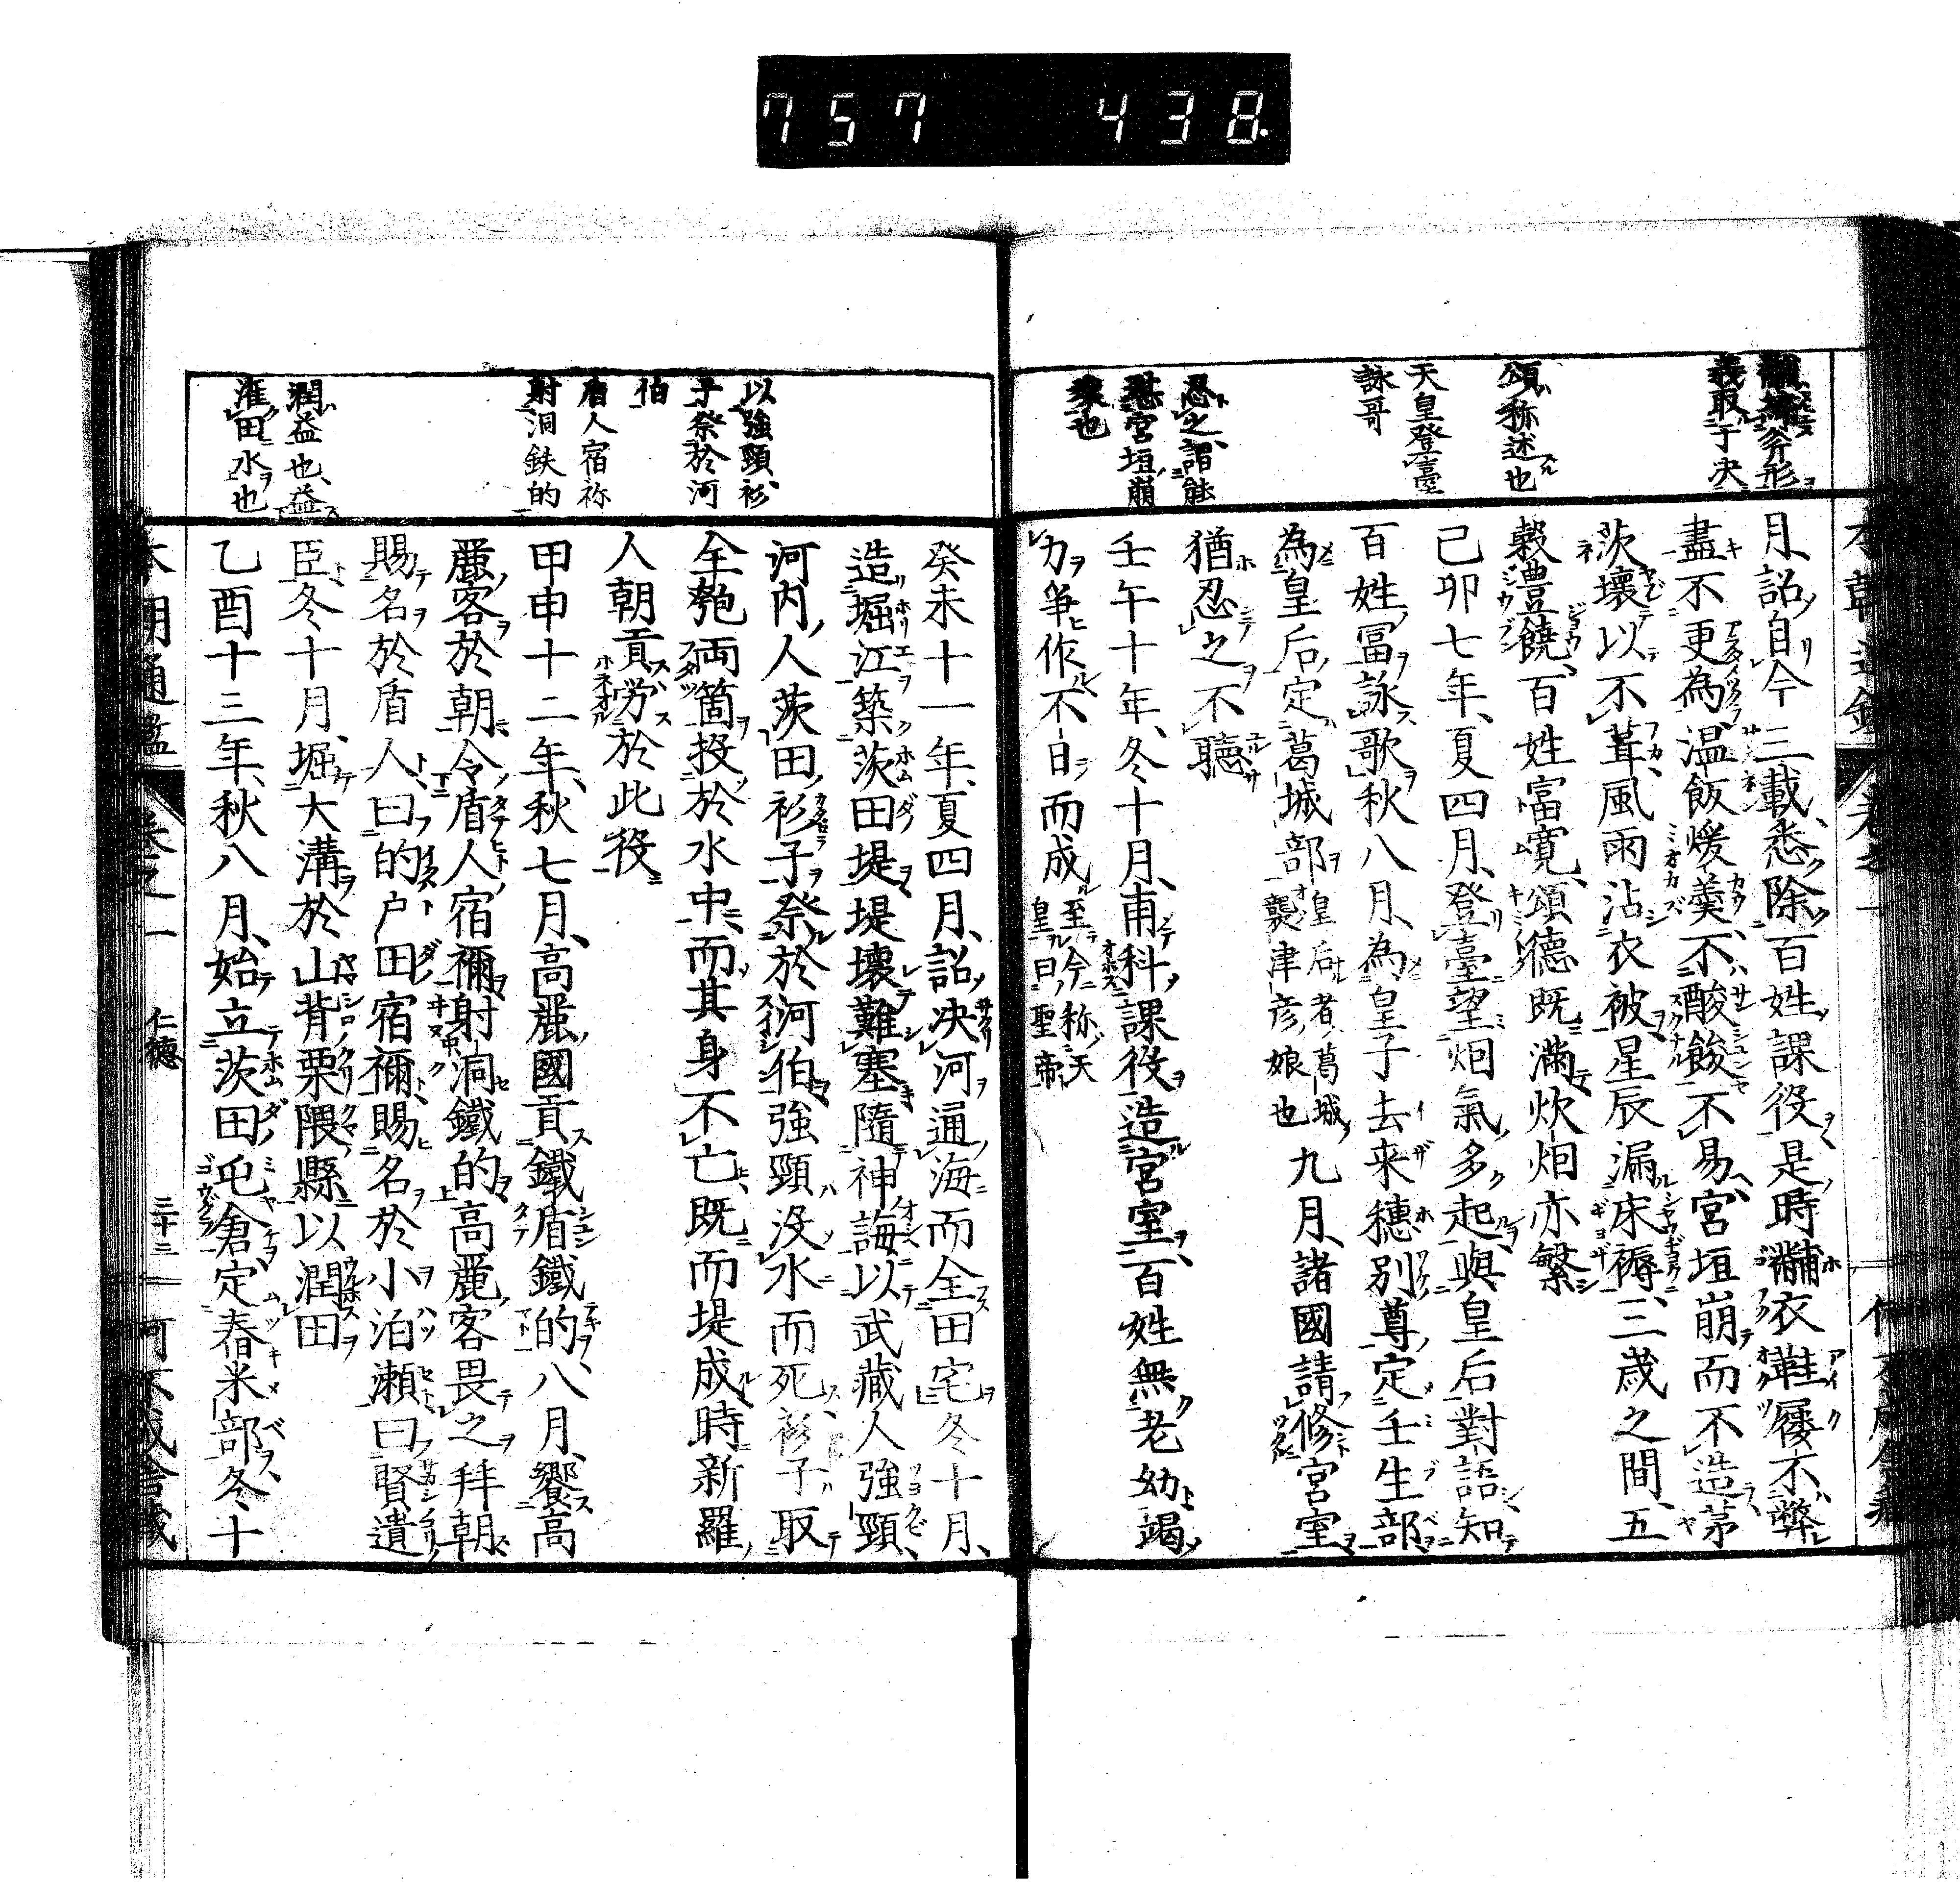 757 438.
義取于決
頌称述也
天皇登臺
詠哥
忍之謂能
宮垣崩
月、詔自今三載、悉除百姓課役是時黼衣鞋屨不弊
盡不更為、温飯煖羹、不酸餒不易、宮垣崩而不造茅
茨壞以不葺風雨沾衣被星辰漏床褥、三歳之間、五
穀豊饒、百姓富寛、頌徳既滿炊烟亦繁
己卯七年、夏四月、登臺望烟氣多起與皇后對語知
百姓冨詠歌秋八月、為皇子去来穗別尊定壬生部
為皇后定葛城部皇后者葛城襲津彦娘也九月、諸國請修宮室
猶忍之不聽
壬午十年、冬十月、甫科課役造宮室、百姓無老幼竭
力争作不日而成至今称天皇曰聖帝
癸未十一年、夏四月、詔決河通海而全田宅冬十月、
造堀江築茨田堤堤壞難塞隨神誨以武藏人強頸
河内人茨田衫子祭於河伯強頸沒水而死衫子取
全匏両箇投於水中、而其身不亡既而堤成時新羅
人朝貢労於此役
甲申十二年、秋七月、高麗國貢鐵盾鐵的、八月、饗高
麗客於朝令盾人宿禰射洞鐵的高麗客畏之拜朝
賜名於盾人曰的戸田宿禰賜名於小泊瀬曰賢遺
臣冬十月、堀大溝於山背栗隈縣以潤田
乙酉十三年、秋八月、始立茨田屯倉定舂米部冬十
以強頸衫
子祭於河
伯
盾人宿祢
射洞鉄的
潤益也、益
灌田水也
本朝通鑑
卷之一
仁徳
三十三